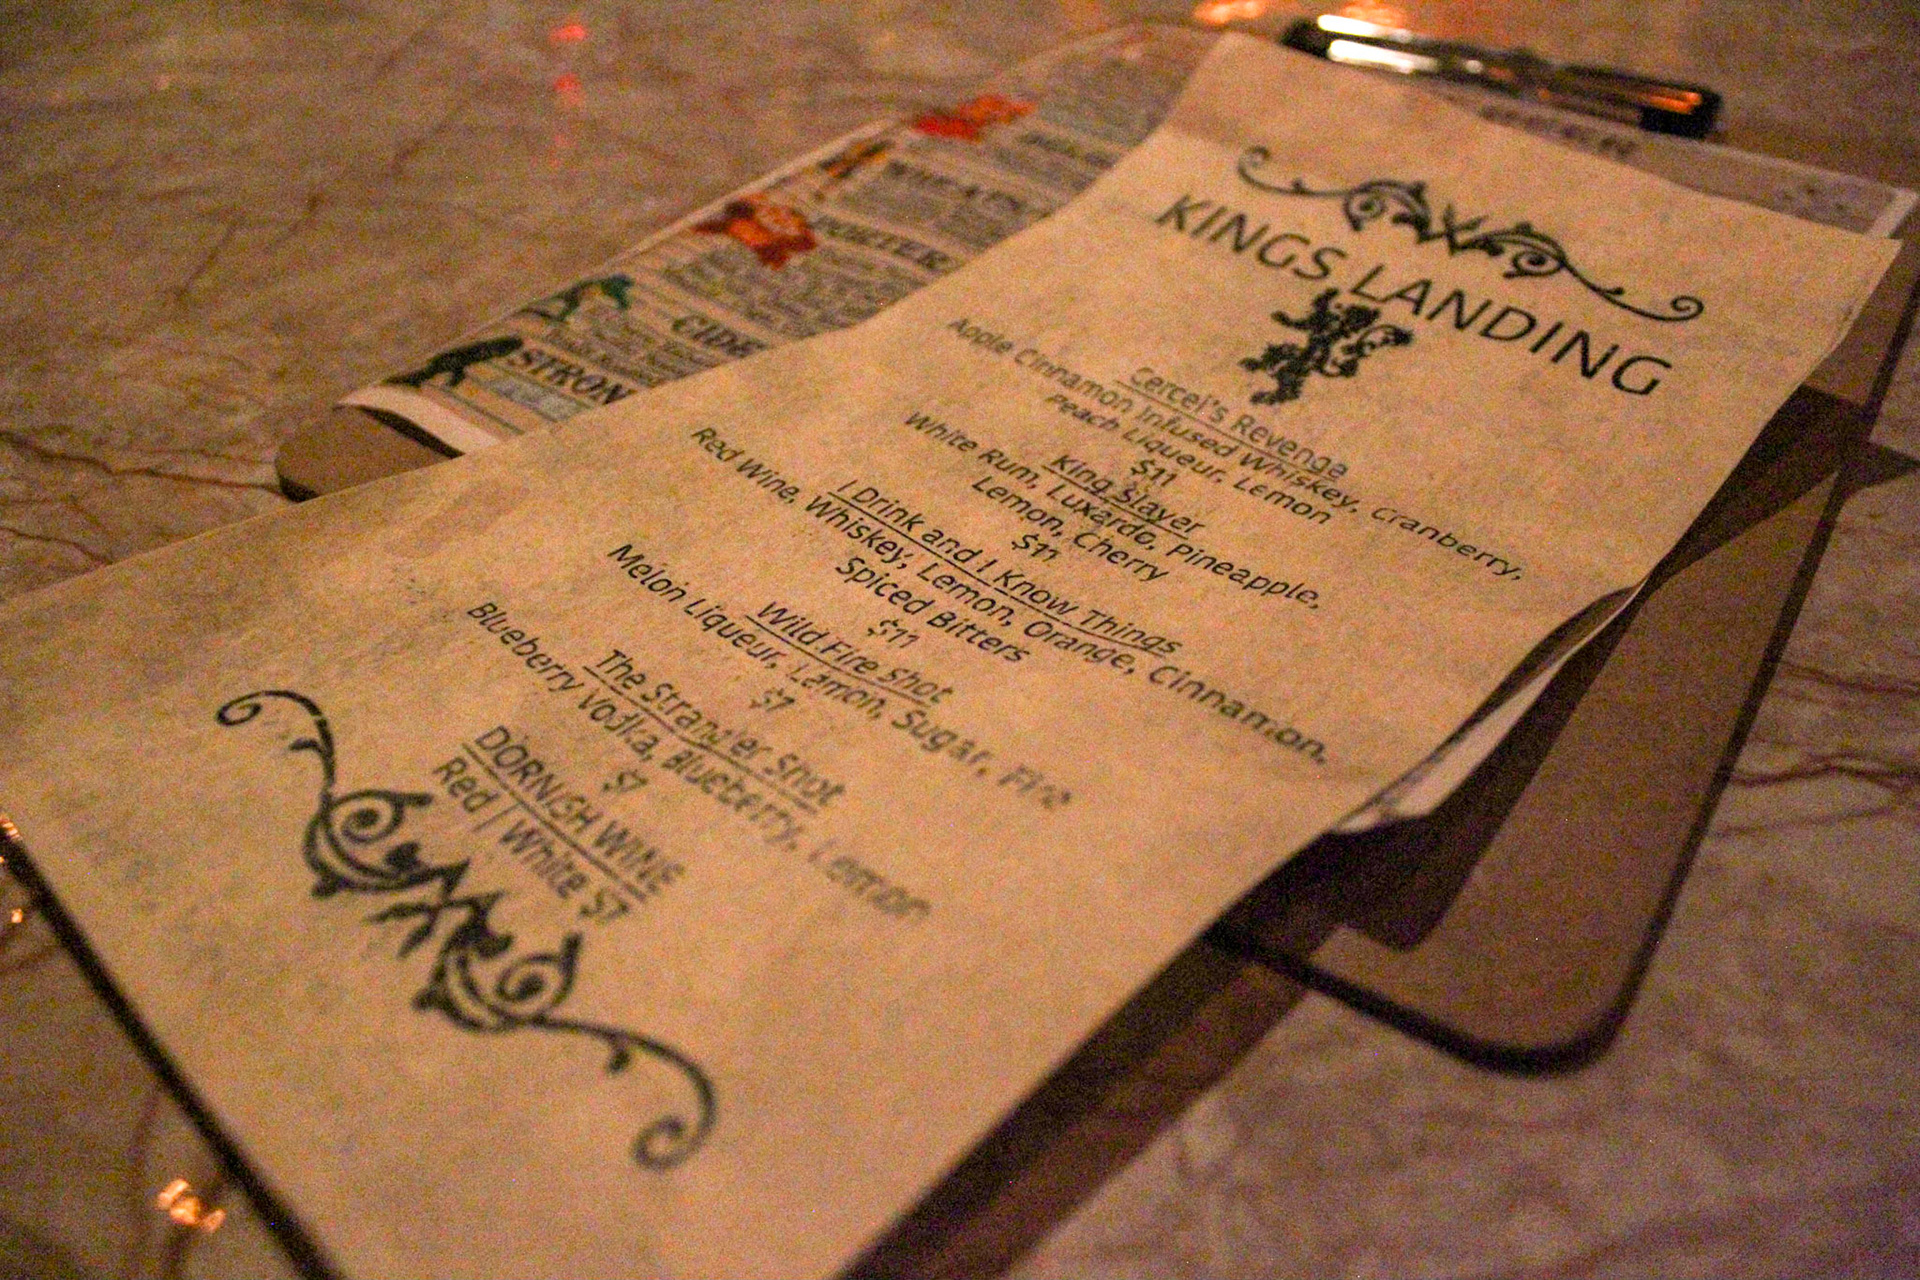 KINGS LANDING
Cercei's Revenge
Apple Cinnamon Infused Whiskey, Cranberry,
Peach Liqueur, Lemon
$11
King Slayer
White Rum, Luxardo, Pineapple,
Lemon, Cherry
$11
I Drink and I Know Things
Red Wine, Whiskey, Lemon, Orange, Cinnamon,
Spiced Bitters
$11
Wild Fire Shot
Melon Liqueur, Lemon, Sugar, Fire
$7
The Strangler Shot
Blueberry Vodka, Blueberry, Lemon
$7
DORNISH WINE
Red | White $7
PORTER
CIDE
STRON